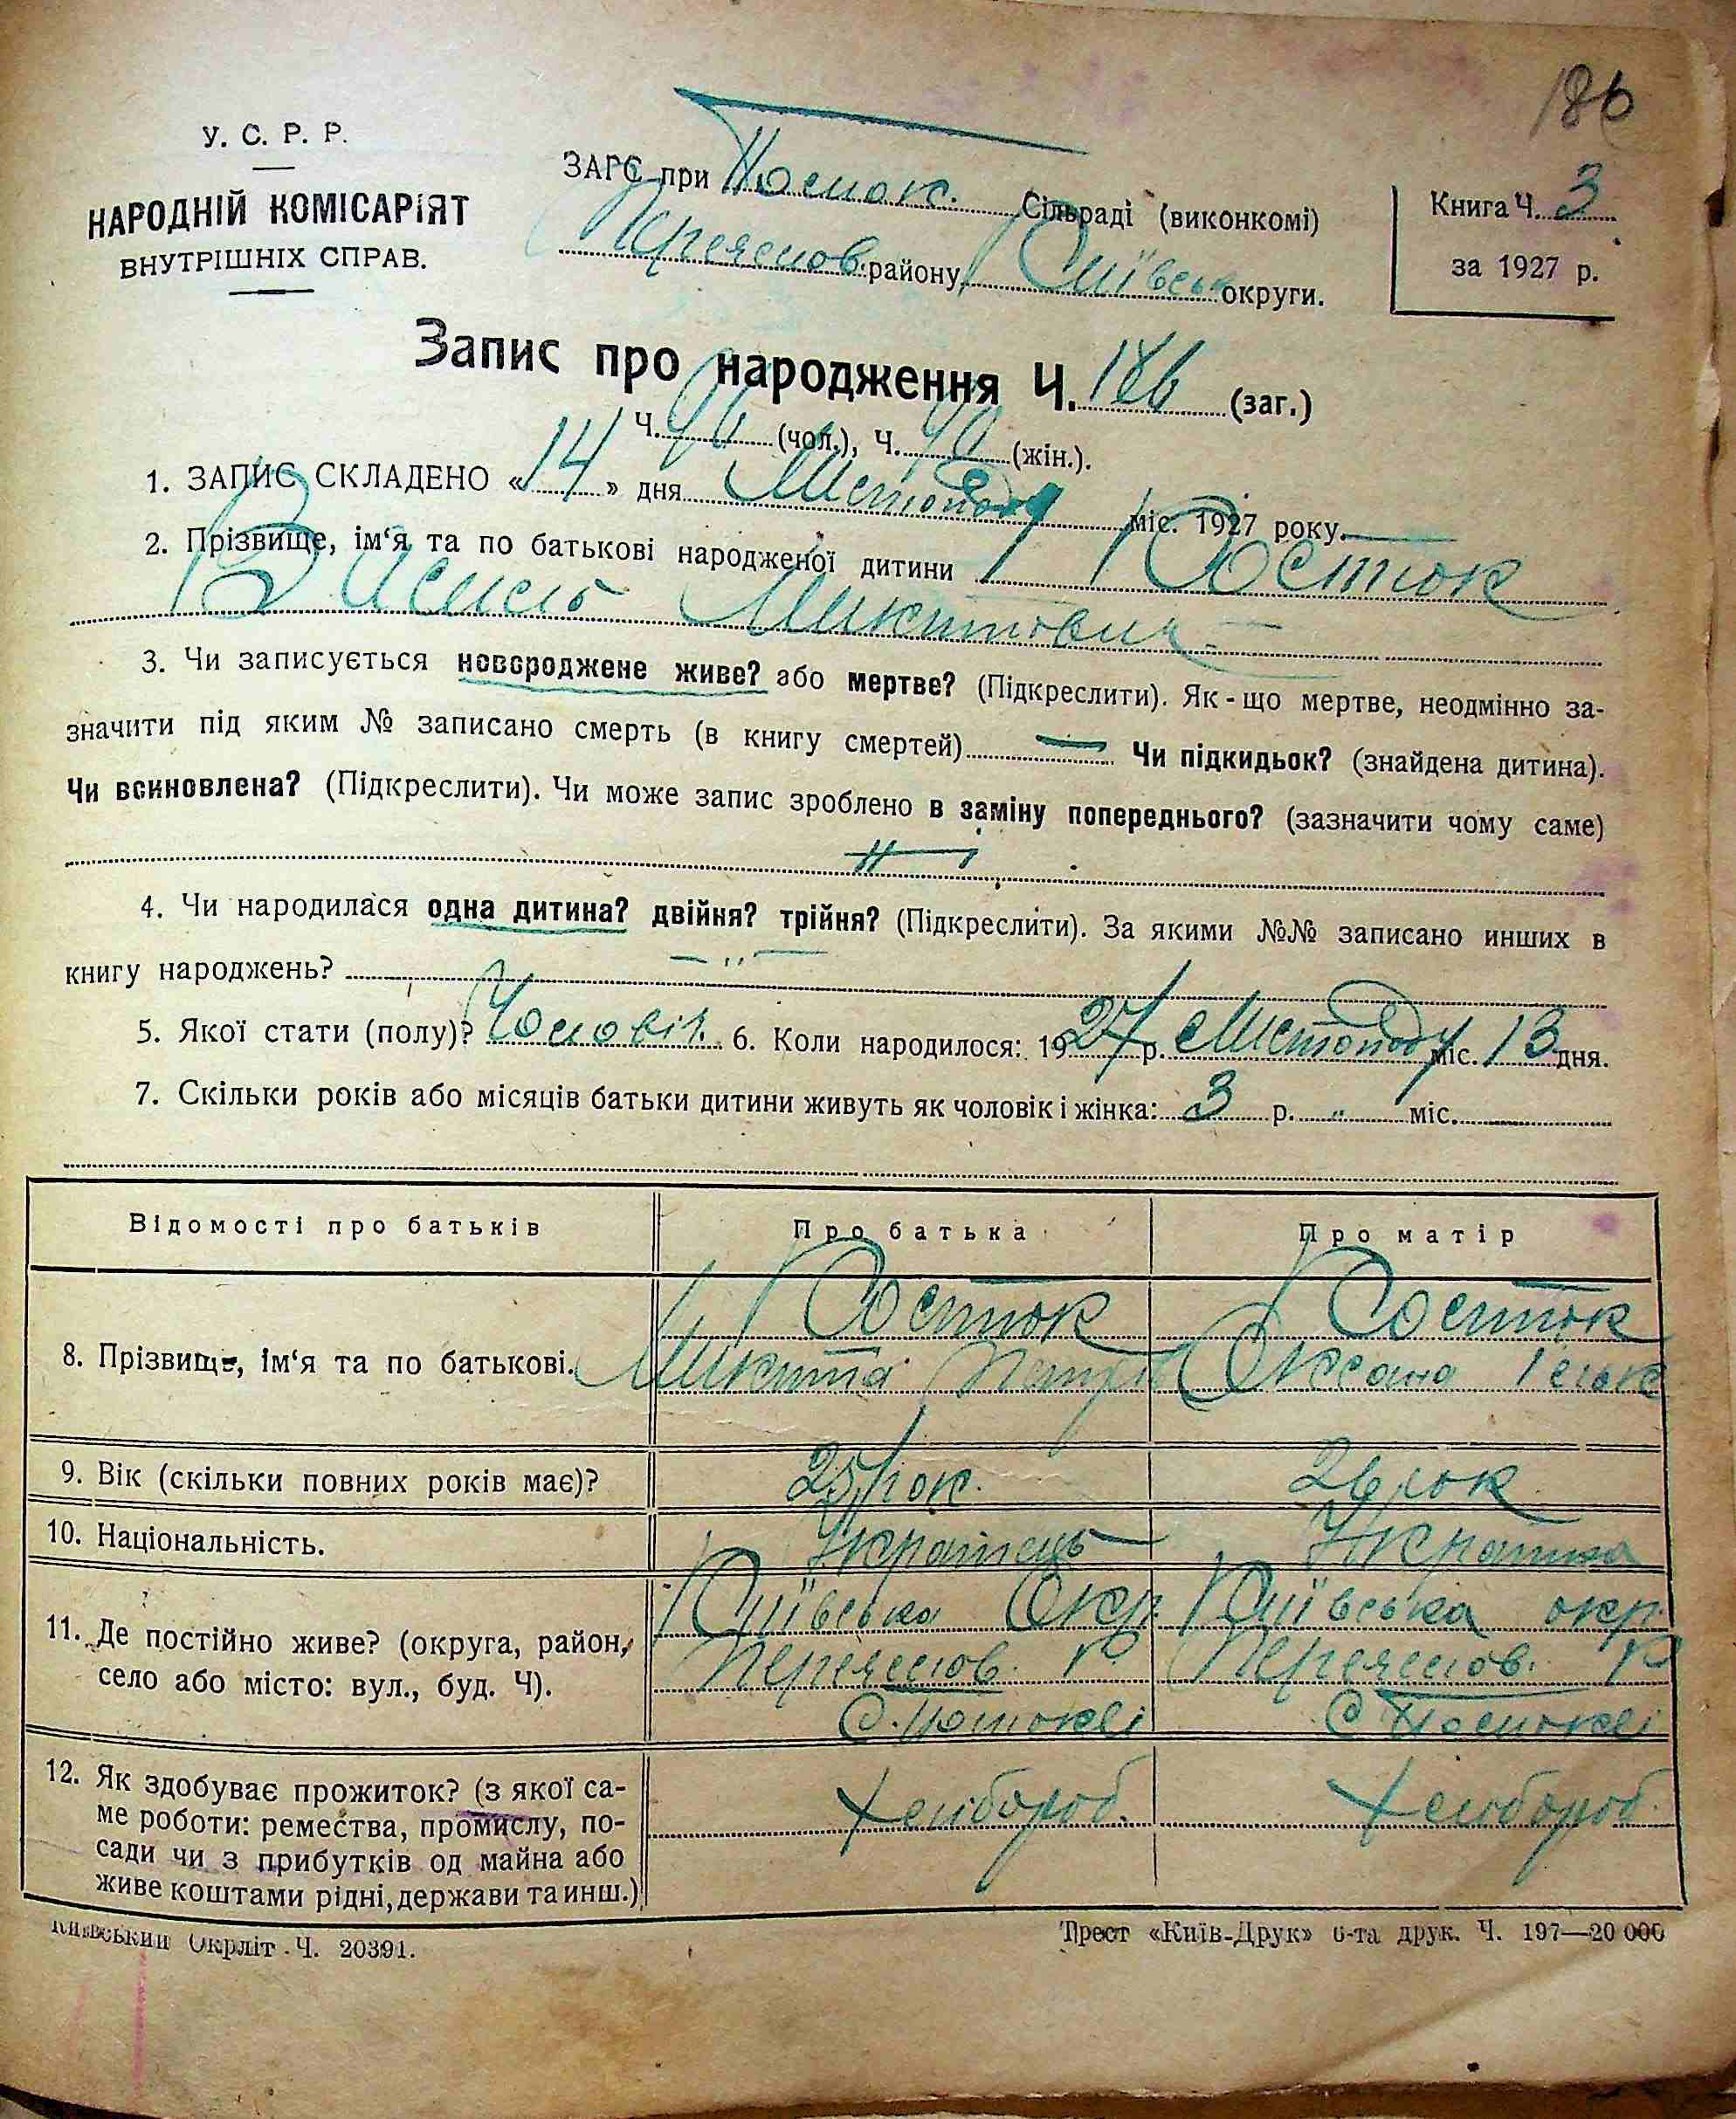 186
У. С. Р. Р.
НАРОДНІЙ КОМІСАРІЯТ
ВНУТРІШНІХ СПРАВ.
ЗАГС при Помок. Сільраді (виконкомі)
Переяслов. району, Київськ округи.
Книга Ч. 3
за 1927 р.
Запис про народження Ч. 186 (заг.)
Ч. 96 (чол.), Ч. 90 (жін.).
1. ЗАПИС СКЛАДЕНО « 14 » дня Листопаду міс. 1927 року.
2. Прізвище, ім‘я та по батькові народженої дитини Косток
Василь Микитович
3. Чи записується новороджене живе? або мертве? (Підкреслити). Як-що мертве, неодмінно за-
значити під яким № записано смерть (в книгу смертей) — Чи підкидьок? (знайдена дитина).
Чи всиновлена? (Підкреслити). Чи може запис зроблено в заміну попереднього? (зазначити чому саме)
4. Чи народилася одна дитина? двійня? трійня? (Підкреслити). За якими №№ записано инших в
книгу народжень? — „ —
5. Якої стати (полу)? Чоловіч. 6. Коли народилося: 1927 р. Листопаду міс. 13 дня.
7. Скільки років або місяців батьки дитини живуть як чоловік і жінка: 3 р. „ міс.
Відомості про батьків Про батька Про матір
8. Прізвище, ім‘я та по батькові. Косток Косток
Микита Петрів Оксана
9. Вік (скільки повних років має)? 25 рок. 26 рок
10. Національність. Українець Українка
11. Де постійно живе? (округа, район, село або місто: вул., буд. Ч). Київська Окр. Київська окр.
Переяслов. Р. Переяслов. Р
С. Помоклі С Помоклі
12. Як здобуває прожиток? (з якої са-
ме роботи: ремества, промислу, по-
сади чи з прибутків од майна або
живе коштами рідні, держави та инш.) Хлібороб. Хлібороб.
Київський Окрліт Ч. 20391.
Трест «Київ-Друк» 6-та друк. Ч. 197—20 000